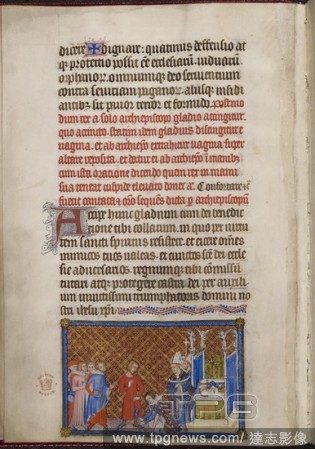 dicere ✠ dignare: quatinus deffensio at
qꝫ protectio possit esse ecclesiarum viduarum
orphanorum omniumqꝫ deo servientium
contra sevitiam paganorum aliisqꝫ insidi
antibus sit pavor terror et formido. Postmo
dum rex a solo archiepiscopo gladio accingitur.
quo accincto statim idem gladius
vagina. et ab archiepiscopo extrahitur vagina super
altare reposita. et datur ei ab archiepiscopo in manibus
cum ista oratione dicendo quem rex in manu
sua teneat cuspide elevato donec Confortare
fuerit cantata et oratio sequens dicta per archiepiscopum
Accipe hunc gladium cum dei benedic
tione tibi collatum. in quo per virtu
tem sancti spiritus resistere. et eicere omnes
inimicos tuos valeas. et cunctos sancte dei eccle
sie adversarios regnumqꝫ tibi commissum
tutari atqꝫ protegere castra dei. per auxilium
invictissimi triumphatoris domini no
stri ihesu christi
TPG
www.tpgnews.com/ 達志影像